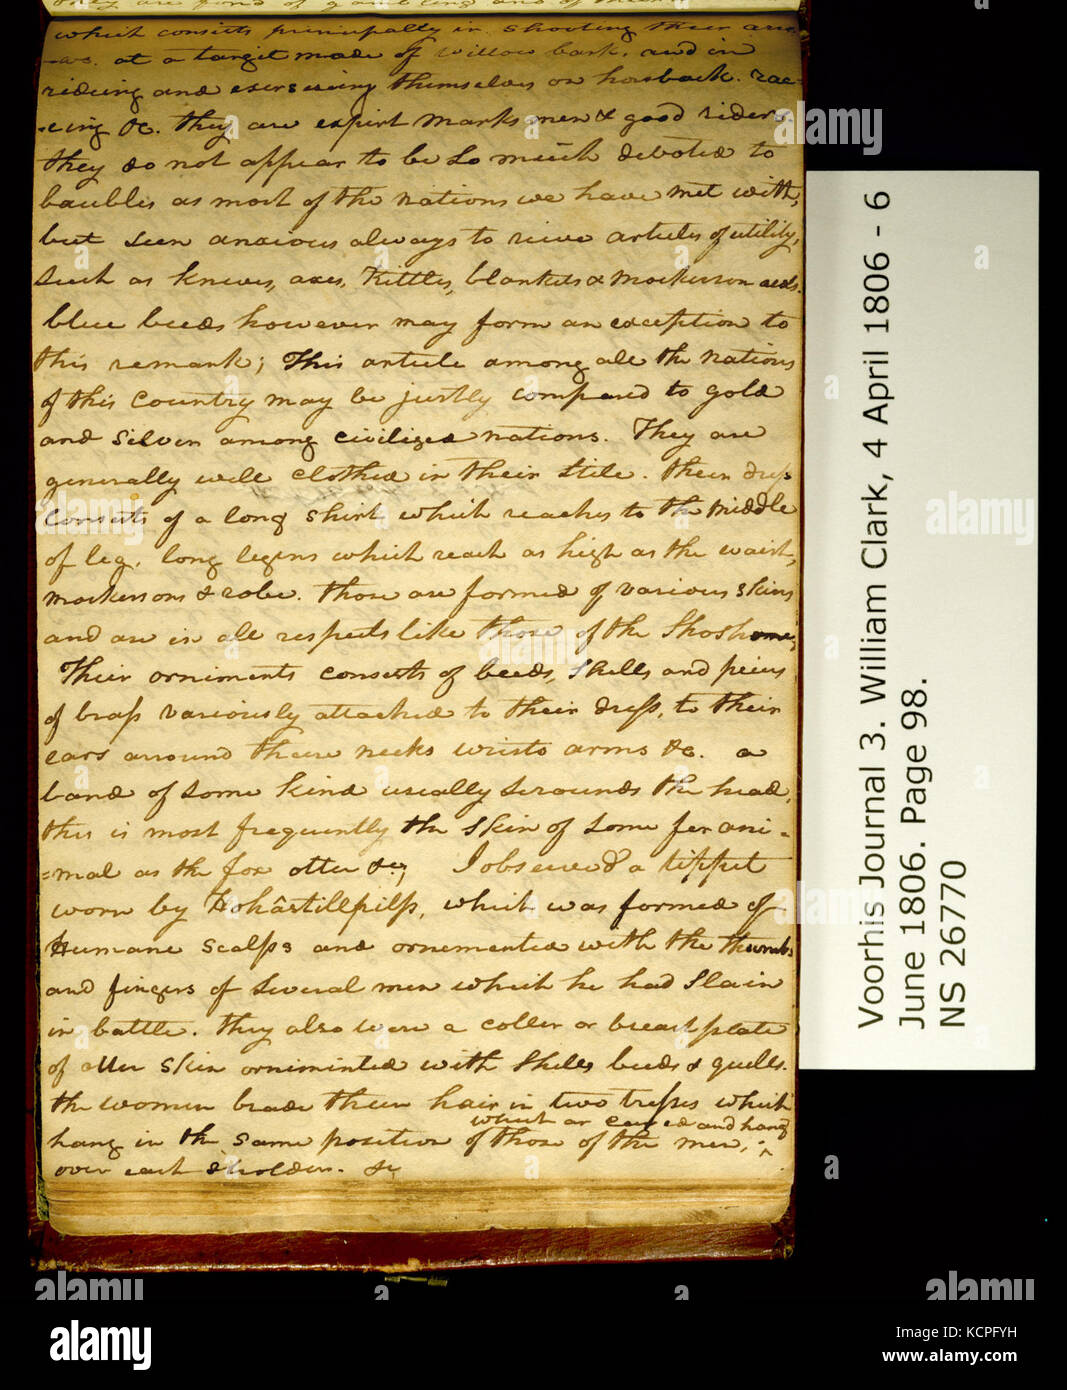 they are fond of gambling and of their
which consists principally in shooting their arr
=ws. at a target made of willow bark, and in
rideing and exersiseing themselves on horsback. rae
=cing &c. they are expirt marks men & good riders.
they do not appear to be so much devoted to
baubles as most of the nations we have met with,
but seen anxious always to riceve articles of utility,
such as knives, axes, Kittles, blankets & mockerson awls.
blue beeds however may form an exception to
this remark; This article among all the nations
of this country may be justly compared to gold
and silver among civilized nations. They are
generally well clothed in their stile. their dress
consists of a long shirt which reaches to the middle
of leg, long legins which reach as high as the waist,
mockersons & robe. those are formed of various skins
and are in all respects like those of the Shoshone,
Their orniments consists of beeds, Shells and peices
of brass variously attached to their dress, to their
ears arround theire necks wrists arms &c. a
band of some kind usually serounds the head,
this is most frequently the skin of some fer ani=
=mal as the fox otter &c, I observed a tippet
worn by Hohâstillpilp, which was formed of
Humane scalps and ornemented with the thumbs
and fingers of several men which he had Slain
in battle. they also were a coller or breastplate
of otter skin orniminted with shells beeds & quills.
the women brade their hair in two tresses which
hang in the same position of those of the men,
which ar and hang
over each sholder. &c,
Voorhis Journal 3. William Clark, 4 April 1806 - 6
June 1806. Page 98.
NS 26770
alamy
a
Image ID: KCPFYH
www.alamy.com